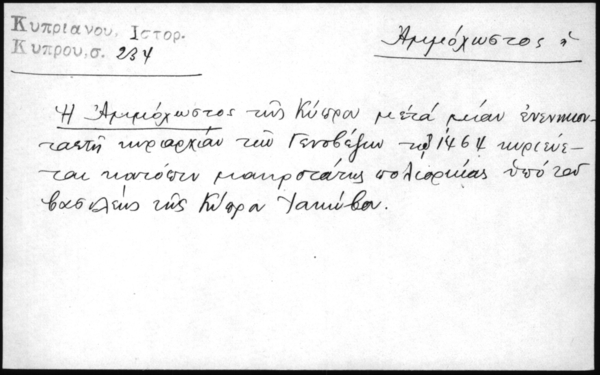 Κυπριανου, Ιστορ.
Κυπρου, σ. 234
Ἀμμόχωστος
Ἡ Ἀμμόχωστος τῆς Κύπρου μετά μίαν ἐνενηκον-
ταετῆ κυριαρχίαν τῶν Γενοβέζων τῷ 1464 κυριεύε-
ται κατόπιν μακροτάτης πολιορκίας ὑπό τοῦ
βασιλέως τῆς Κύπρου Ἰακώβου.